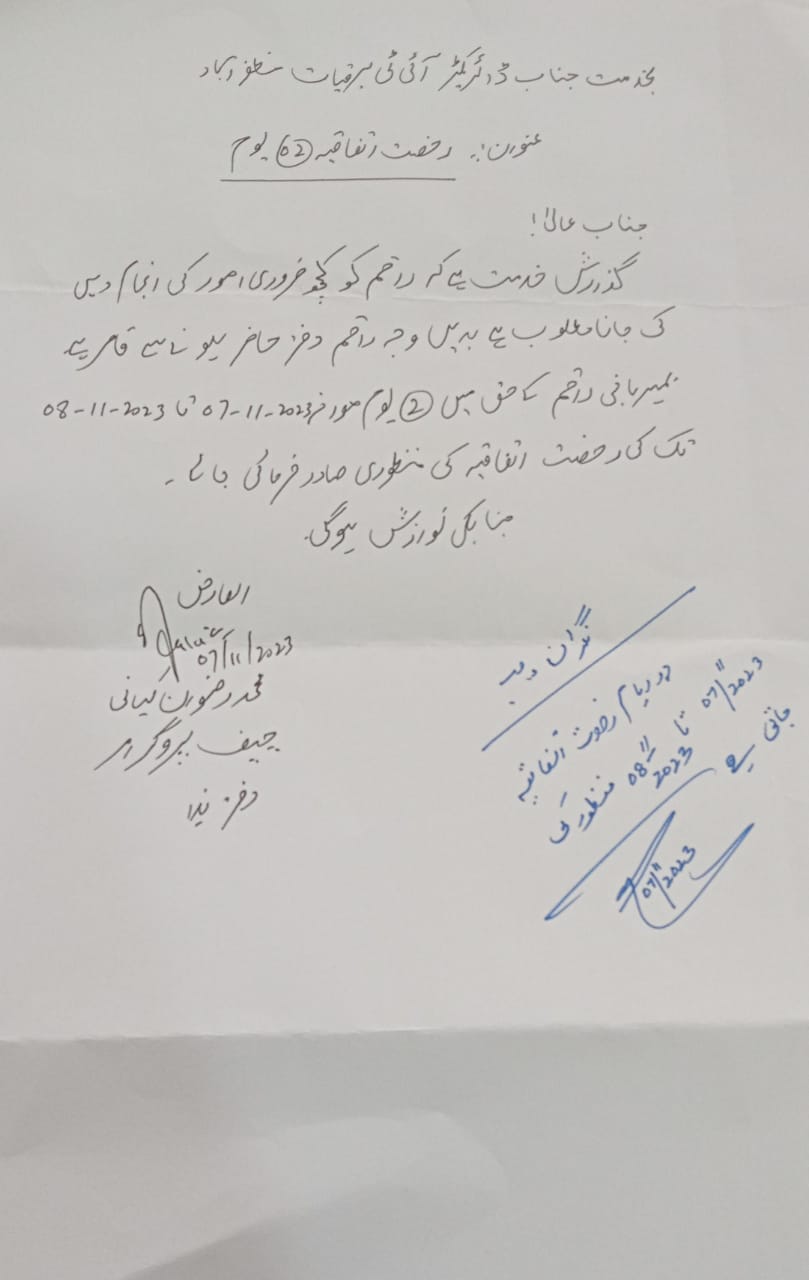 بخدمت جناب ڈائریکٹر آئی ٹی برقیات مظفرآباد
عنوان:۔ رخصت اتفاقیہ (02) یوم
جناب عالی!
گذارش خدمت ہے کہ راقم کو کچھ ضروری امور کی انجام دہی
کی جانا مطلوب ہے بدیں وجہ راقم دفتر حاضر ہونے سے قاصر ہے
بمہربانی راقم کے حق میں (2) یوم مورخہ 07-11-2023 تا 08-11-2023
تک کی رخصت اتفاقیہ کی منظوری صادر فرمائی جائے۔
جناب کی نوازش ہوگی۔
العارض
07/11/2023
محمد رضوان کیانی
چیف پروگرامر
دفتر ہذا
نگران ویب
دو ایام رخصت اتفاقیہ
07/11/2023 تا 08/11/2023 منظور کی
جاتی ہے
07/11/2023